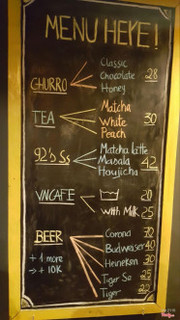 MENU HERE!
Classic
CHURRO Chocolate 28
Honey
Matcha
TEA White 30
Peach
Matcha Latte
92's Ss Masala 42
Houjicha
VNCAFE 20
with Milk 25
Corona 70
BEER Budweiser 40
+ 1 more Heineken 30
→ + 10K Tiger Se 25
Tiger 22